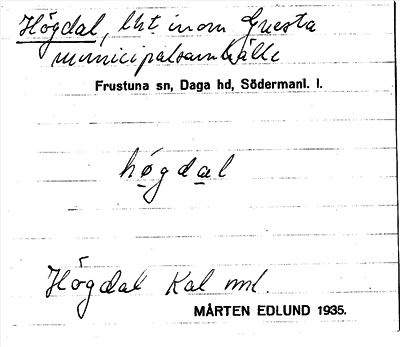 Högdal, lht. inom Gnesta
municipalsamhälle
Frustuna sn, Daga hd, Södermanl. l.
høgdal
Högdal Kal ml.
MÅRTEN EDLUND 1935.